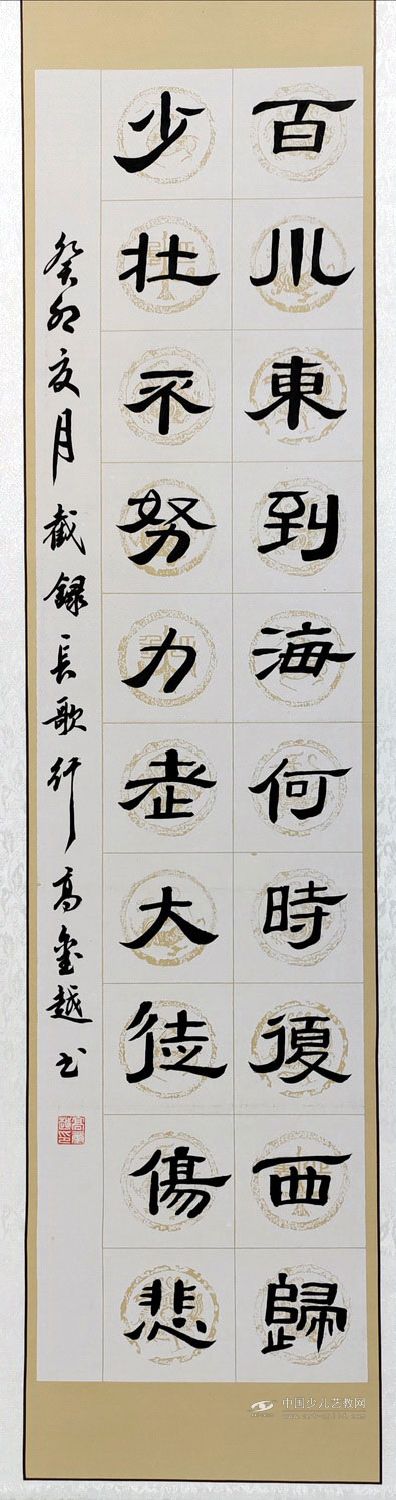 百川東到海何時復西歸
少壯不努力老大徒傷悲
癸卯夏月截錄長歌行高金越书
中国少儿艺教网